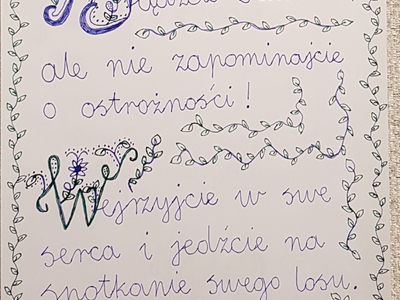 ale nie zapominajcie
o ostrożności!
Wejrzyjcie w swe
serca i jedźcie na
spotkanie swego losu.